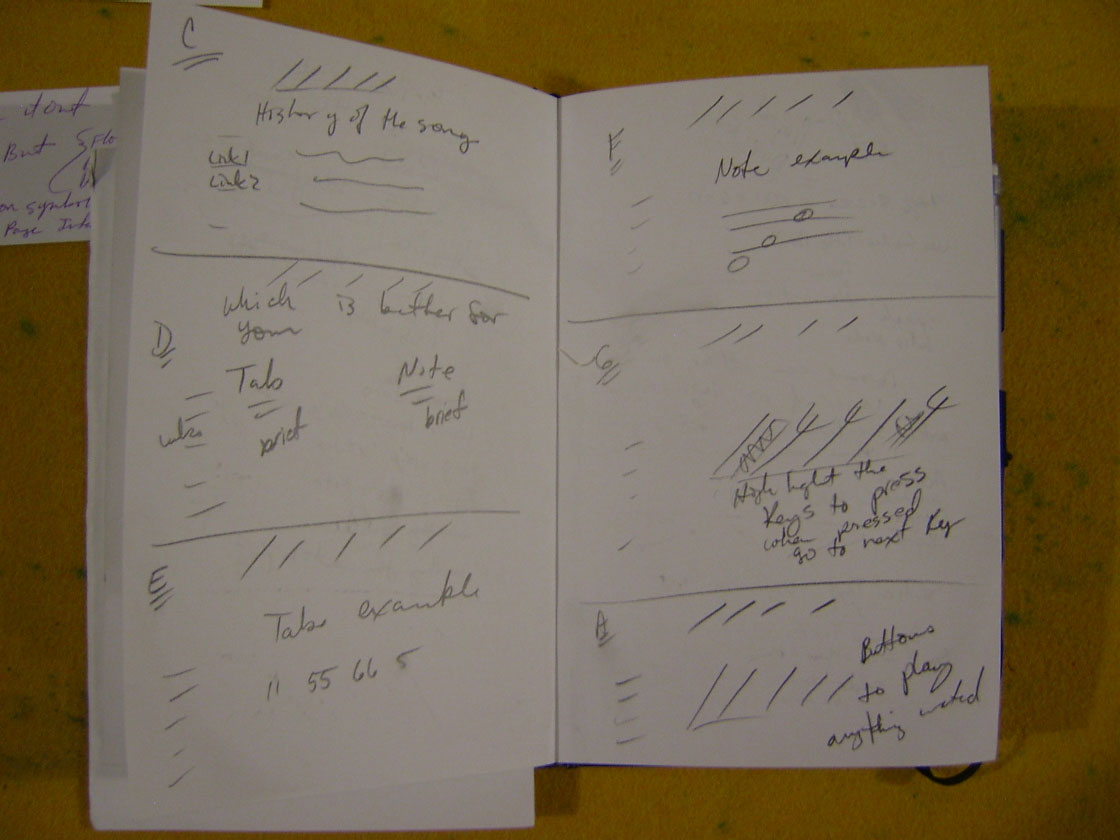 it out
But
on symbol
Page Inte
C
History of the song
Link1
Link2
D
which is better for
your
Tab Note
brief brief
E
Tabs example
11 55 66 5
F
Note example
G
High light the
Keys to press
when pressed
go to next Key
A
Buttons
to play
anything wated